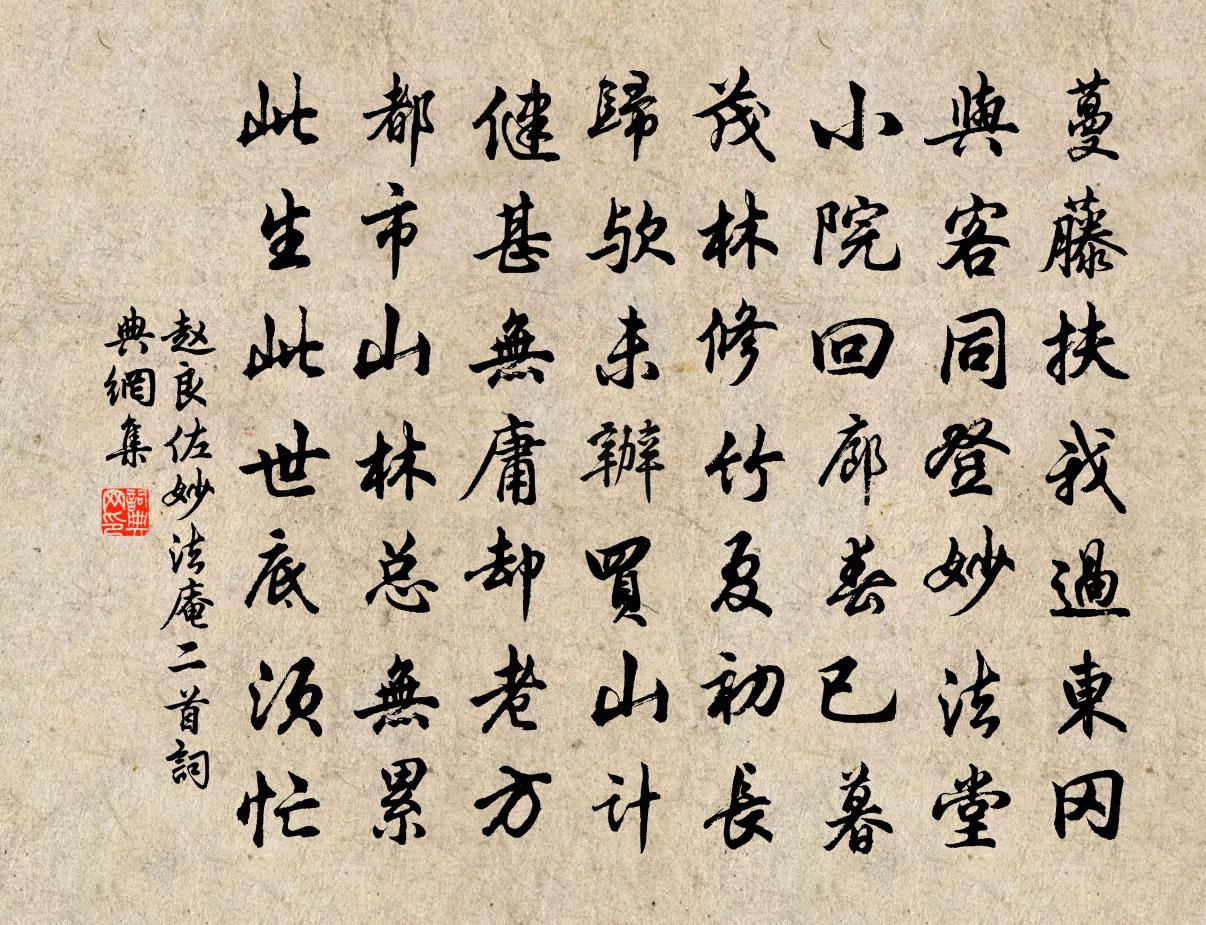 蔓藤扶我過東冈
與客同登妙法堂
小院回廊春已暮
茂林修竹夏初長
歸欤未辦買山计
健甚無庸却老方
都市山林总無累
此生此世底须忙
赵良佐妙法庵二首詞
典網集
詞典网印